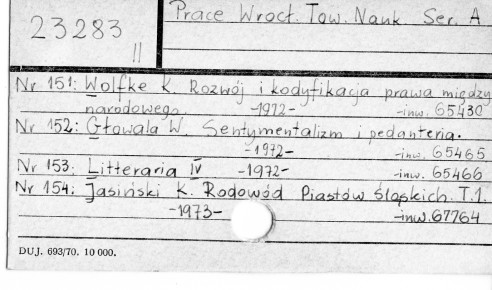 23283
II
Prace Wrocł. Tow. Nauk. Ser. A
Nr 151: Wolfke K. Rozwój i kodyfikacja prawa między
narodowego -1972- -inw. 65430
Nr 152: Głowala W. Sentymentalizm i pedanteria.
-1972- -inw. 65465
Nr 153: Litteraria IV -1972- -inw. 65466
Nr 154: Jasiński K. Rodowód Piastów śląskich. T.1.
-1973- -inw. 67764
DUJ. 693/70. 10 000.